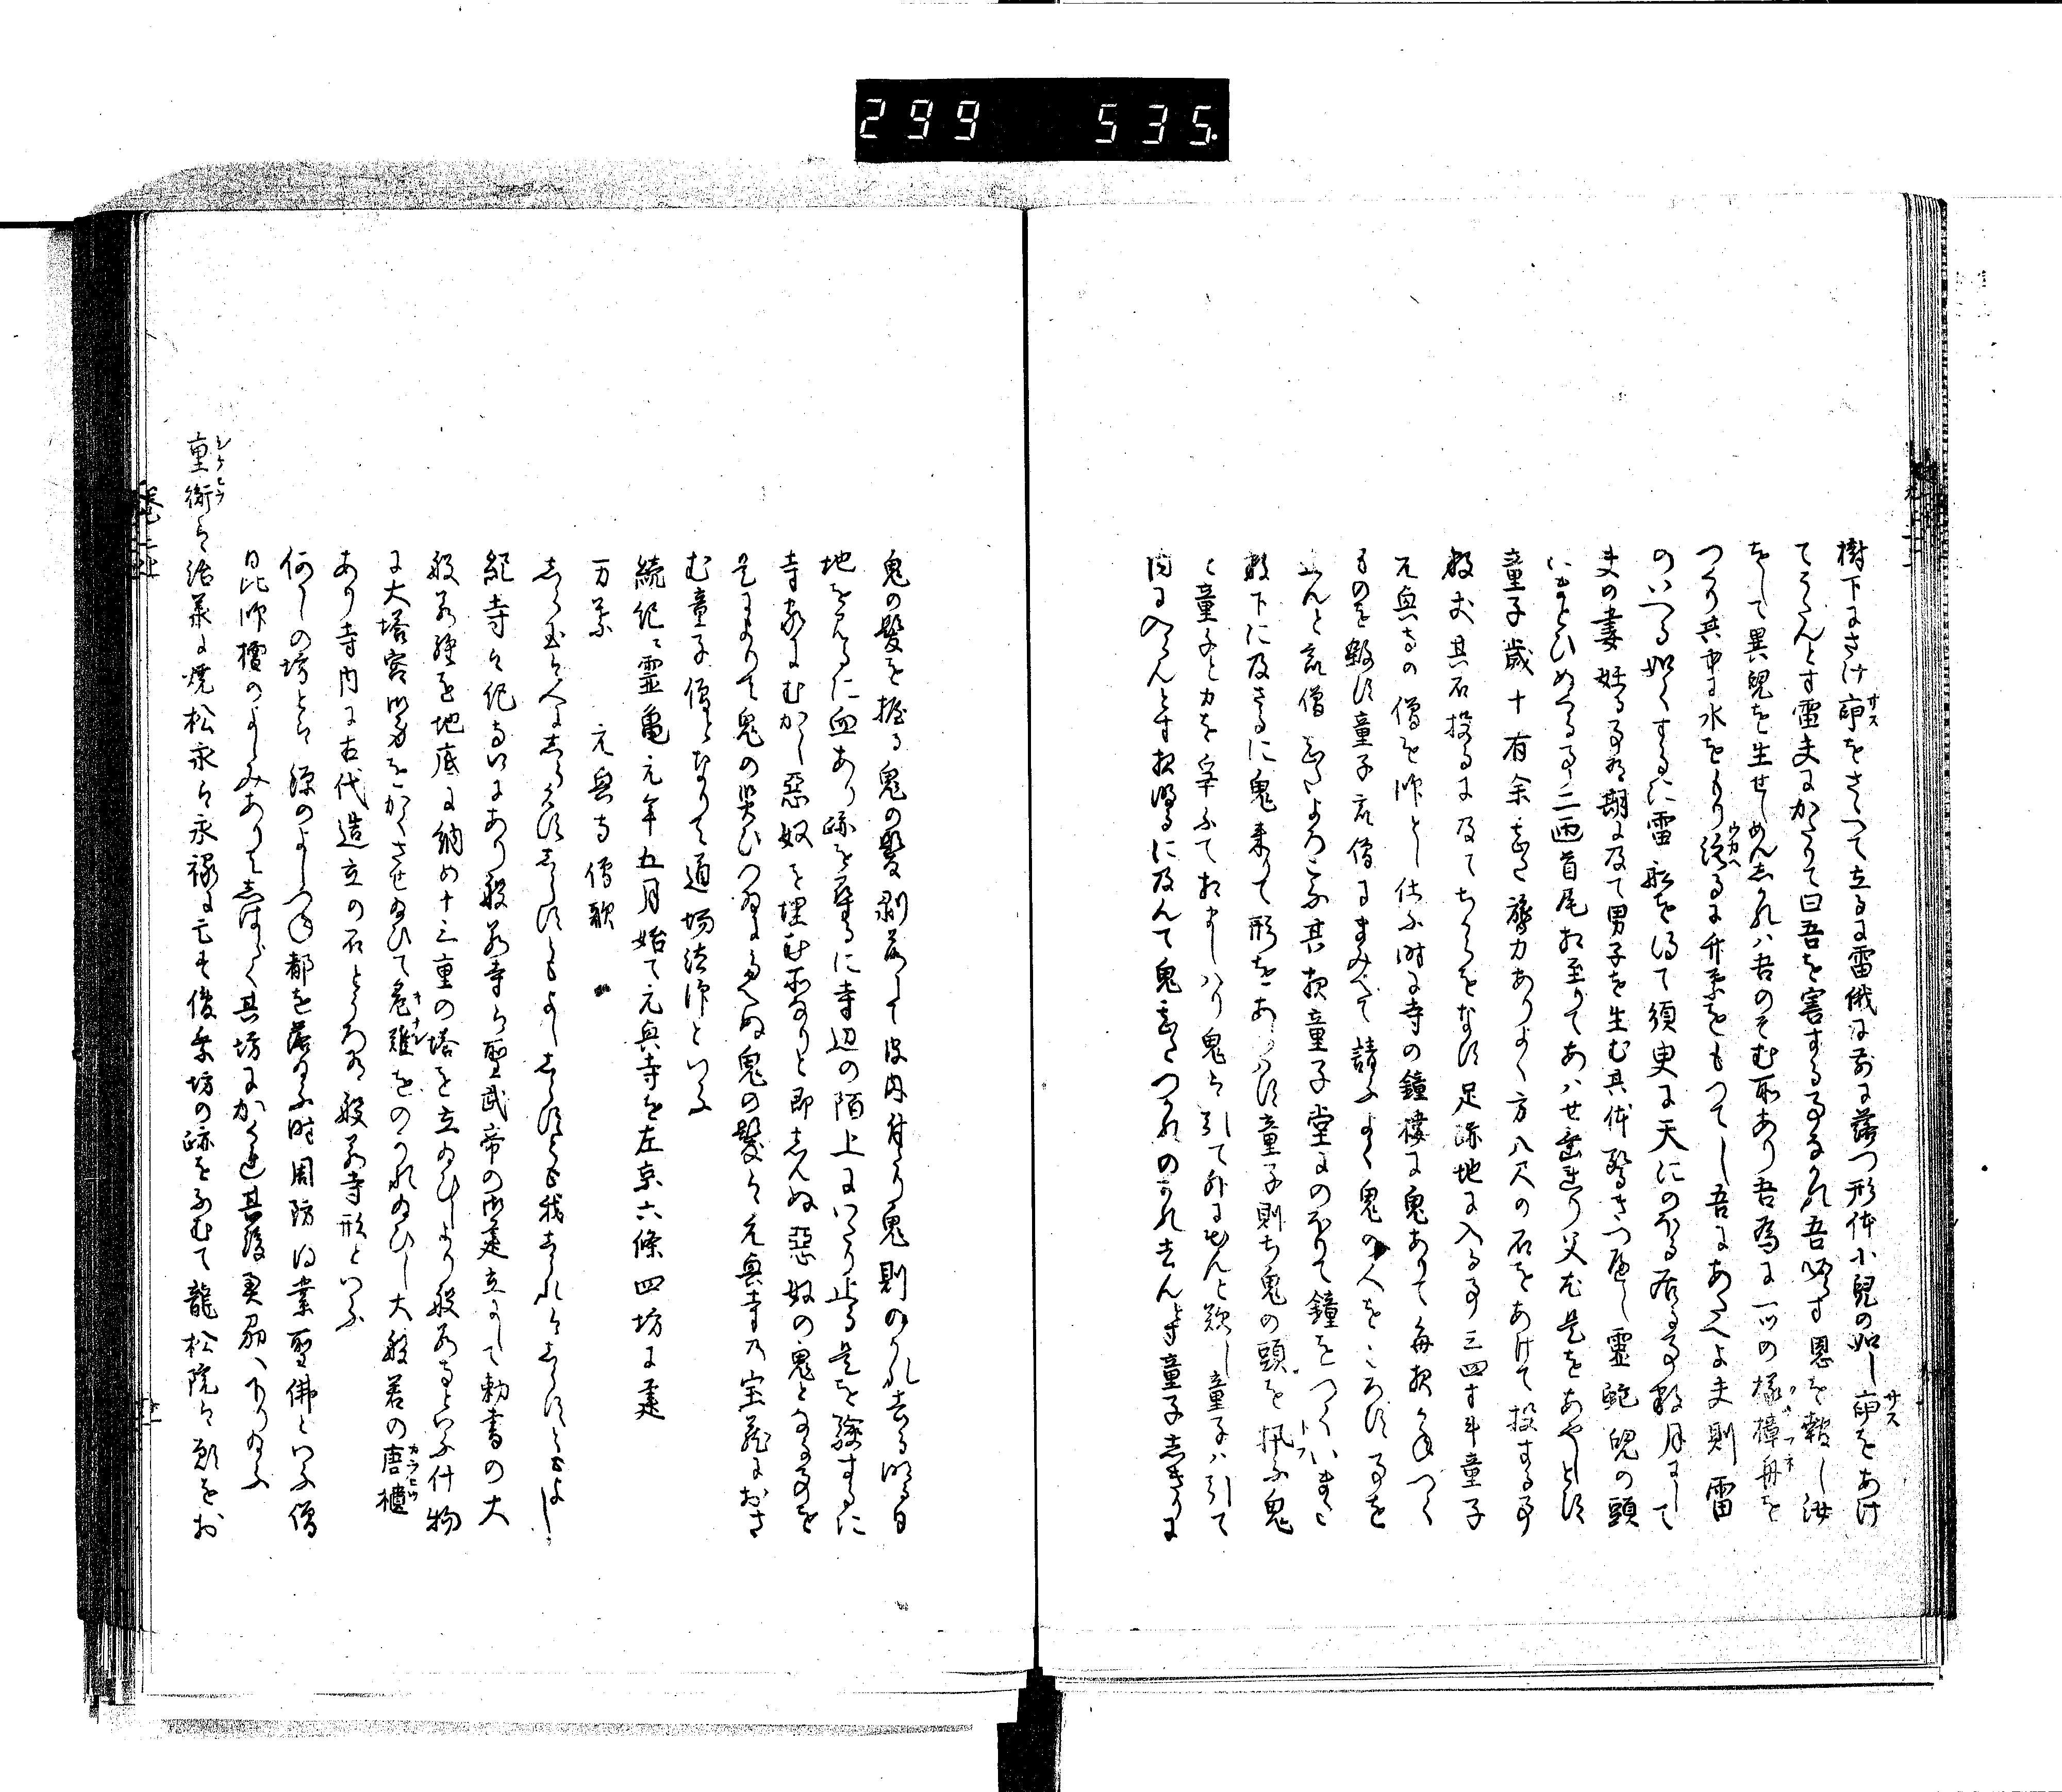 299 535
樹下にさけ篽をさゝつて立るに雷俄に前に落つ形体小児の如し篽をあけ
てうたんとす雷夫にかたりて曰吾を害する事なかれ吾必す恩を報し汝
をして異児を生せしめんしかれハ吾のそむ所あり吾為に一ツの楺樟舟を
つくり其中に水をもり泛るに竹葉をもつてし吾にあたへよ夫則雷
のいへる如くするに雷船を得て須臾に天にのほる居る事数月にして
夫の妻妊る事有期に及て男子を生む其体驚きつ尽し霊蛇児の頭
にまとひめくる事二匝首尾相至りてあハせ垂れり父尤是をあやしとす
童子歳十有余はた膂力ありよく方八尺の石をあけて投する事
数丈其石投るに及てちからをなす足跡地に入る事三四寸斗童子
元興寺の僧を師とし仕ふ時に寺の鐘楼に鬼ありて毎夜かねつく
ものを殺す童子衆僧にまみへて請ふよく鬼の人をころす事を
止んと衆僧はたよろこふ其夜童子堂にのほりて鐘をつくいまた
数下に及さるに鬼来りて形をあらハす童子則ち鬼の頭を捫ふ鬼
と童子と力を争ふて相まじハり鬼は引て外に出んと欲し童子ハ引て
内に入らんとす夜明るに及んて鬼はたつかれのかれ去んとす童子しきりに
鬼の髪を握る鬼の髪剥落して皮肉付たり鬼則のかれ去る明る日
地をみるに血あり跡を尋るに寺辺の陌上にいたり止る是を験するに
寺家にむかし悪奴を埋む所なりと即しんぬ悪奴の鬼となる事を
是によりて鬼の災ひつゐにたへぬ鬼の髪は元興寺乃宝蔵におさ
む童子僧となりて道場法師といふ
続紀ニ霊亀元年五月始て元興寺を左京六條四坊に建
万葉　元興寺僧歌
しら玉は人にしられすしらすともよししらすとも我しれはしらすともよし
紀寺は紀寺村にあり般若寺は聖武帝の御建立にして勅書の大
般若経を地底に納め十三重の塔を立給ひしより般若寺といふ什物
に大塔宮御身をかくさせ給ひて危難をのかれ給ひし大般若の唐櫃
あり寺内に古代造立の石とうろ有般若寺形といふ
何しの坊とは源のよしつね都を落給ふ時周防得業聖佛といふ僧
日比師檀のよしみありてしはらく其坊にかくれ其後奥羽へ下り給ふ
重衡は治承に焼松永は永禄に亡す俊乗坊の跡をふむて龍松院は願をお